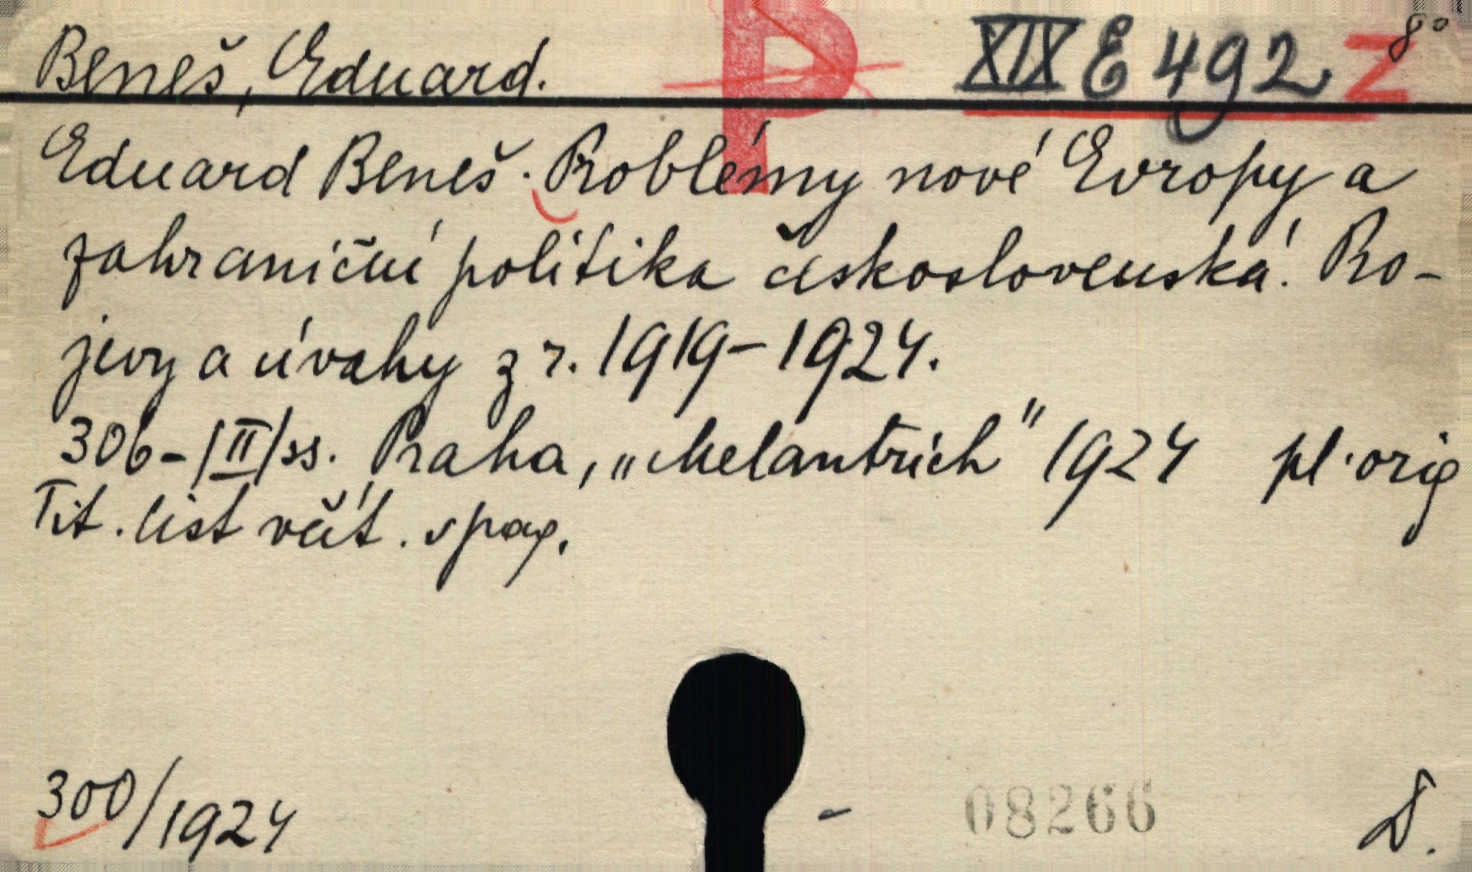 Beneš, Eduard. P XIX E 492 Z 8°
Eduard Beneš. Problémy nové Evropy a
zahraniční politika československá. Pro-
jevy a úvahy z r. 1919-1924.
306-/II/ss. Praha, „Melantrich" 1924 pl. orig
Tit. list včít. v pag.
300/1924 - 08266 D.